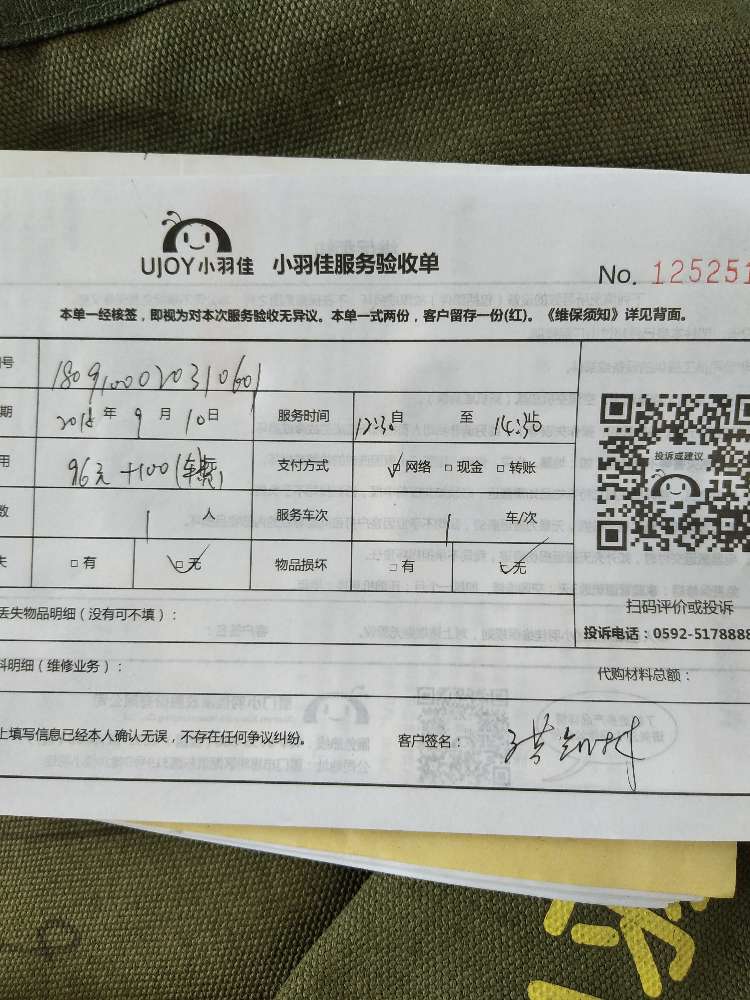 UJOY小羽佳 小羽佳服务验收单 No. 125251
本单一经核签，即视为对本次服务验收无异议。本单一式两份，客户留存一份(红)。《维保须知》详见背面。
号 1809100020310601
期 2018年 9 月 10日 服务时间 12:30自 至 14:30止
用 96元+100( 支付方式 ☑网络 □现金 □转账
数 1 人 服务车次 1 车/次
失 □有 ☑无 物品损坏 □有 ☑无
投诉或建议
扫码评价或投诉
投诉电话：0592-5178888
丢失物品明细（没有可不填）：
料明细（维修业务）： 代购材料总额：
上填写信息已经本人确认无误，不存在任何争议纠纷。 客户签名：